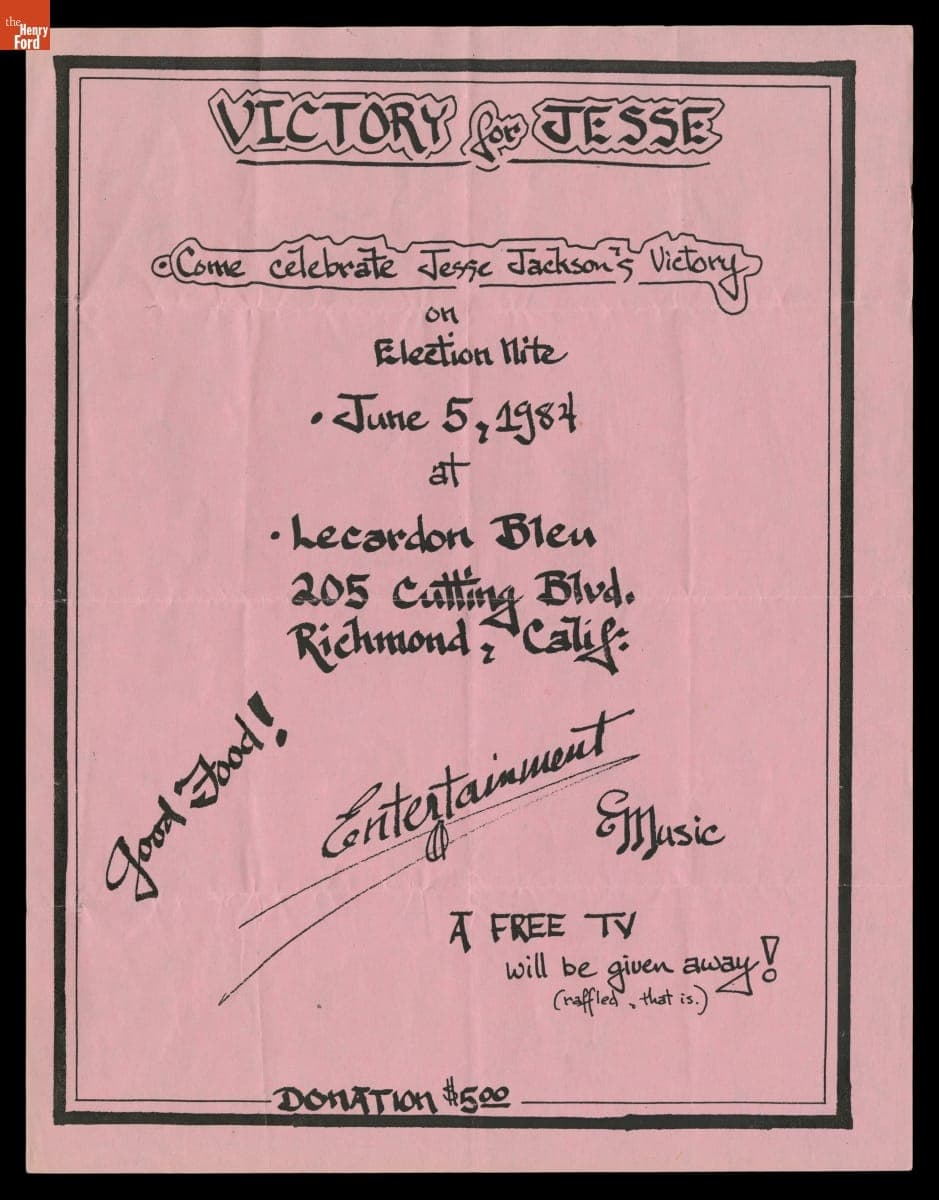 the
Henry
Ford
VICTORY for JESSE
Come celebrate Jesse Jackson's Victory
on
Election Nite
• June 5, 1984
at
• Lecardon Bleu
205 Cutting Blvd.
Richmond, Calif.
Good Food!
Entertainment
& Music
A FREE TV
will be given away!
(raffled, that is.)
DONATION $5.00